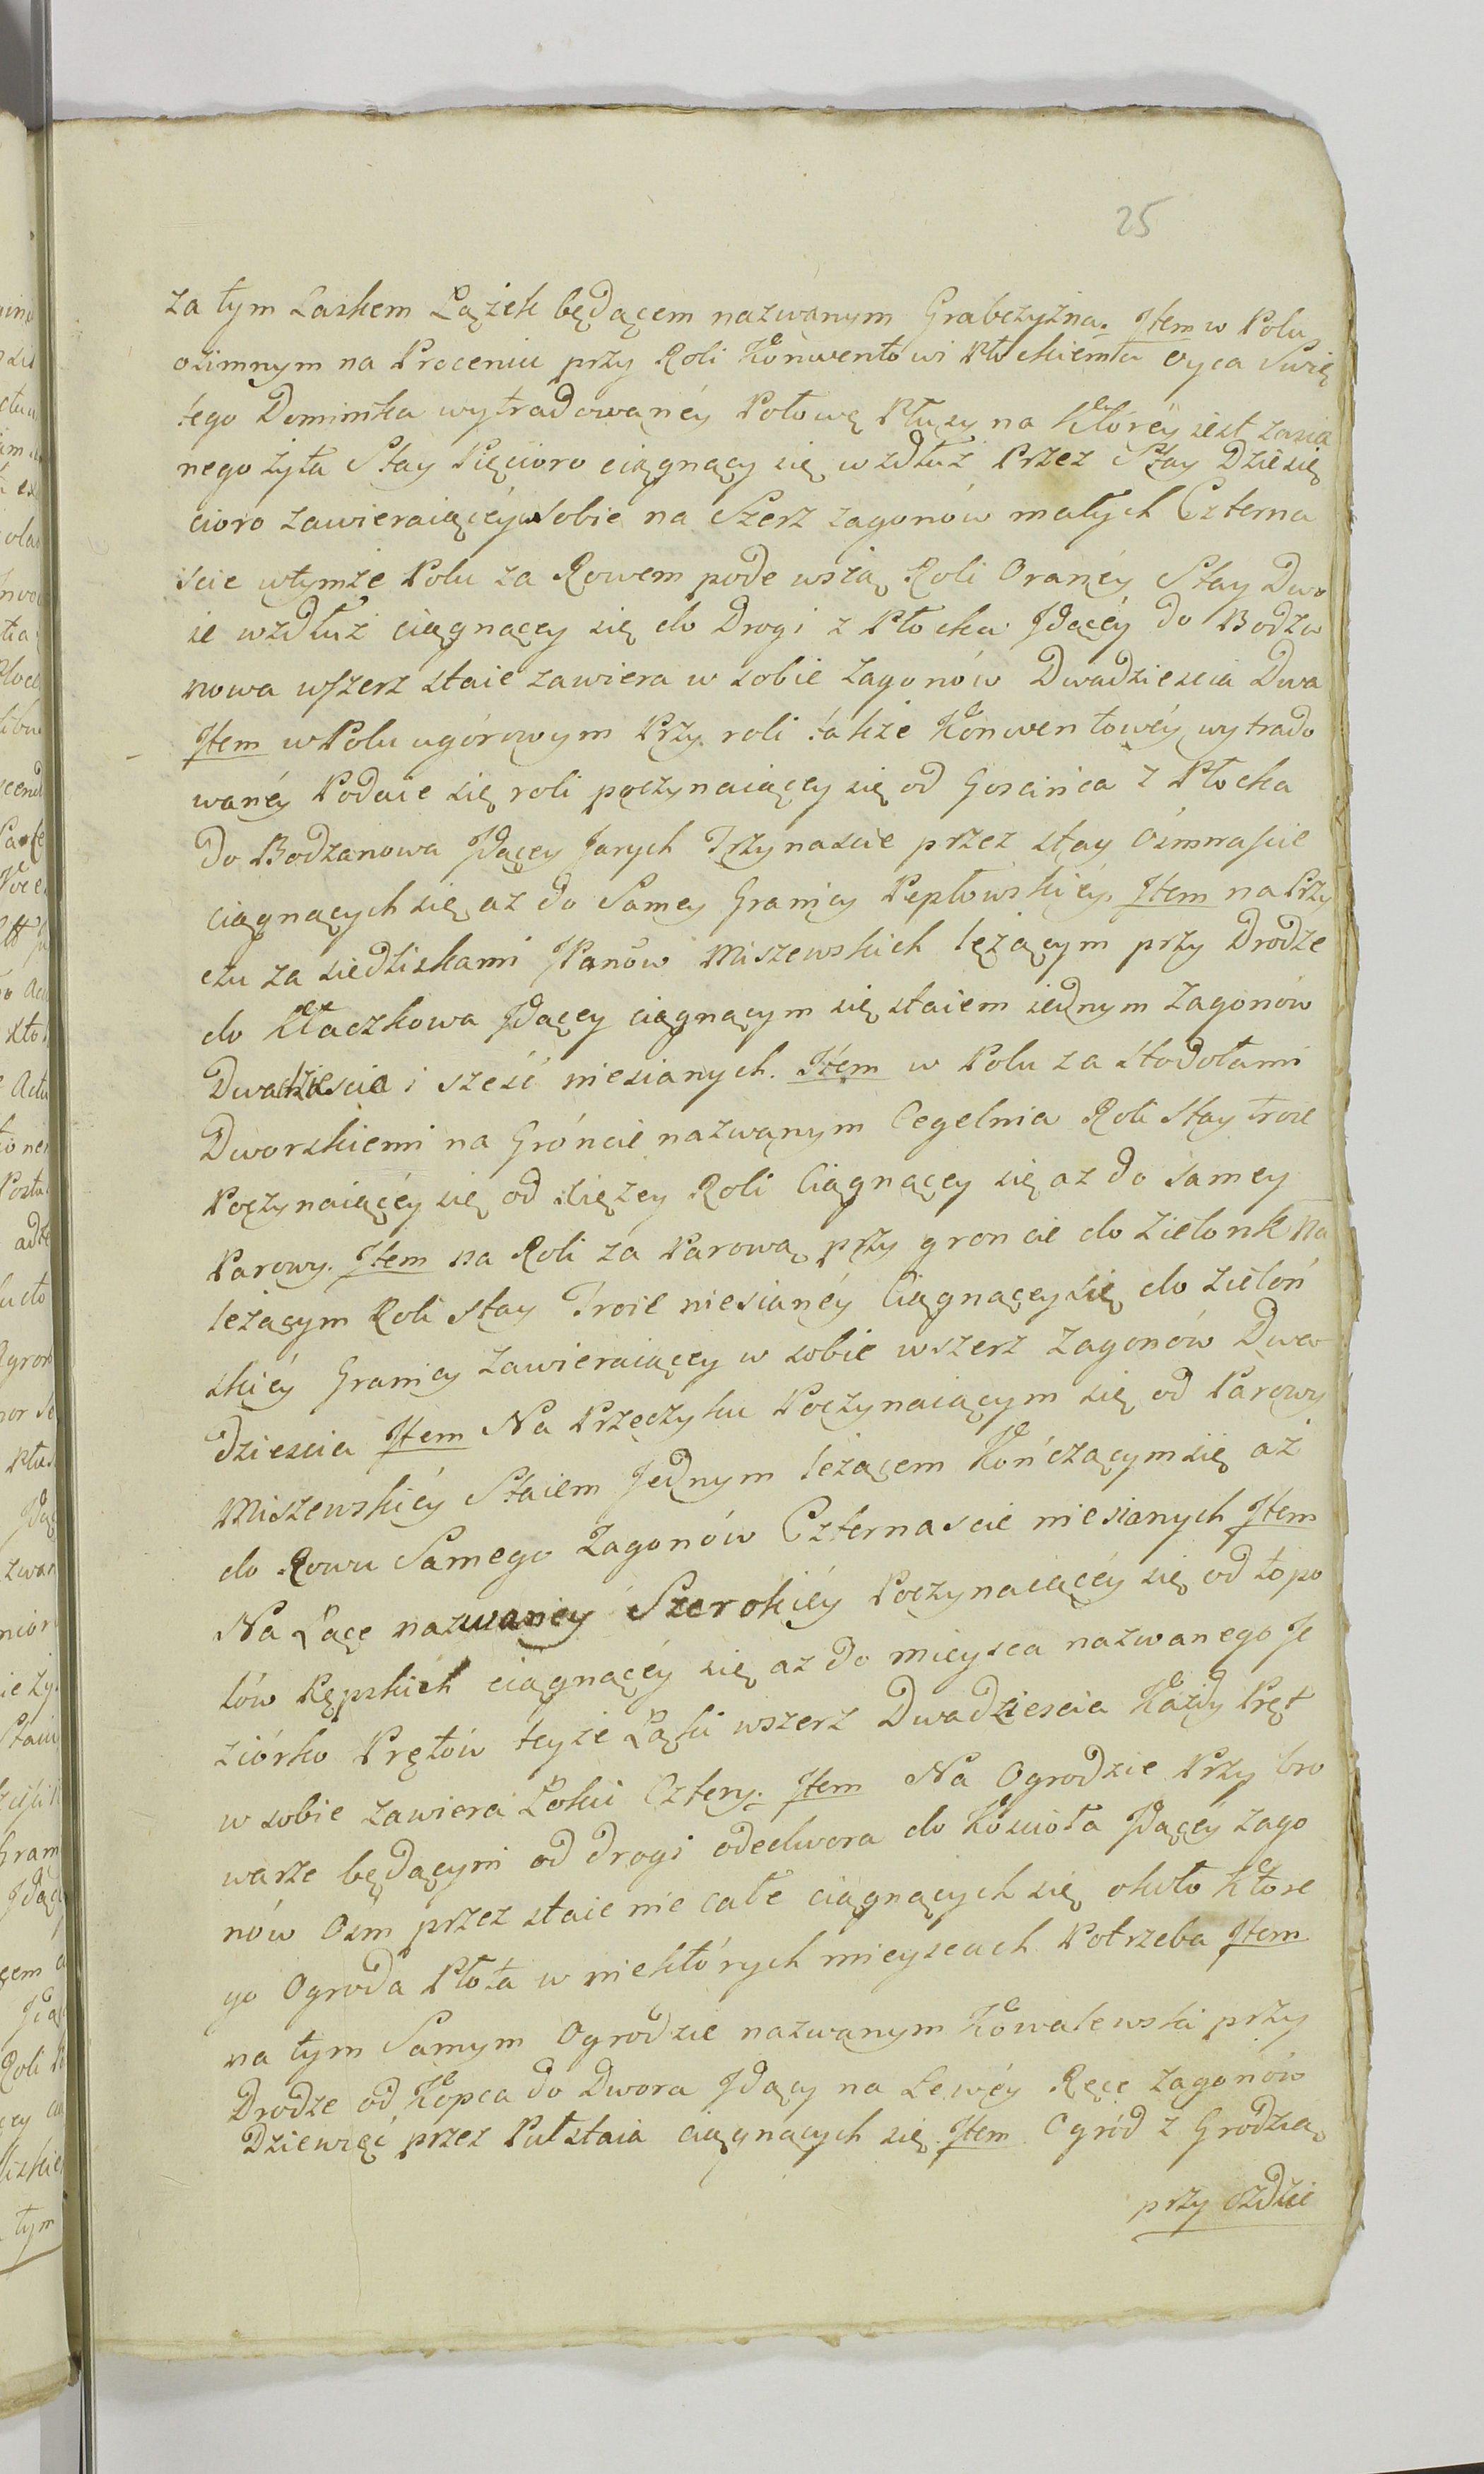 25
za tym Laskem Lązek będącem nazwanym Grabczyzna. Item w Polu
ozimnym na Proceniu przy Roli Konwentowi Płockiemu Oyca Swię
tego Dominika wytradowanéy Połowę Płusy na Któréy iest zasia
nego żyta Stay Pięcioro ciągnący się wzdłuż Przez Stay Dziesię
cioro zawieraiącéy w sobie na Szerz zagonów małych Czterna
scie wtymże Polu za Rowem pode wsią Roli Oranéy Stay Dwo
ie wzdłuż ciągnącéy się do Drogi z Płocka Jdącéy do Bodza
nowa wszerz staie zawiera w sobie zagonów Dwadziescia Dwa
Item w Polu ugórowym Przy roli także Konwentowéy wytrado
wanéy Podaie się roli poczynaiącéy się od Goscińca z Płocka
do Bodzanowa Jdącey Jarych Trzynascie przez stay Osimnascie
ciągnących się az do Samey Granicy Peptowskiéy. Item na Przy
czu za siedliskami JPanów Miszewskich lężącym przy Drodze
do Kłaczkowa Jdącey ciągnącym się staiem iednym Zagonów
Dwadziescia i szesć niesianych. Item w Polu za Stodołami
Dworskiemi na Gróncie nazwanym Cegelnia Roli Stay troie
Poczynaiącéy się od xięzey Roli Ciągnącey się az do samey
Parowy. Item na Roli za Parową przy groncie do Zielonk Na
leżącym Roli stay Troie niesianéy Ciągnącey się do Zieloń
skiéy Granicy zawieraiącey w sobie wszerz Zagonów Dwa
dziescia Item Na Przeczyku Poczynaiącym się od Parowy
Miszewskiéy Staiem Jednym leżącem Kończącym się aż
do Rowu Samego Zagonów Czternascie niesianych Item
Na Łące nazwanéy Szerokiéy Poczynaiącéy się od topo
lów Kępskich ciągnącéy się az do mieysca nazwanego Je
ziórko Prętów teyże Łąki wszerz Dwadziescia Każdy Pręt
w sobie zawiera Łokci Cztery. Item Na Ogrodzie Przy bro
warze będącym od drogi odedwora do Koscioła Jdącéy Zago
nów Osm przez staie nie całe ciągnących się około Które
go Ogroda Płota w niektórych mieyscach Potrzeba Item
na tym Samym Ogrodzie nazwanym Kowalewska przy
Drodze od Kopca do Dwora Jdący na Lewéy Ręce Zagonów
Dziewięć przez Puł staia ciągnących się Item Ogród z Grodzą
przy ozdzie